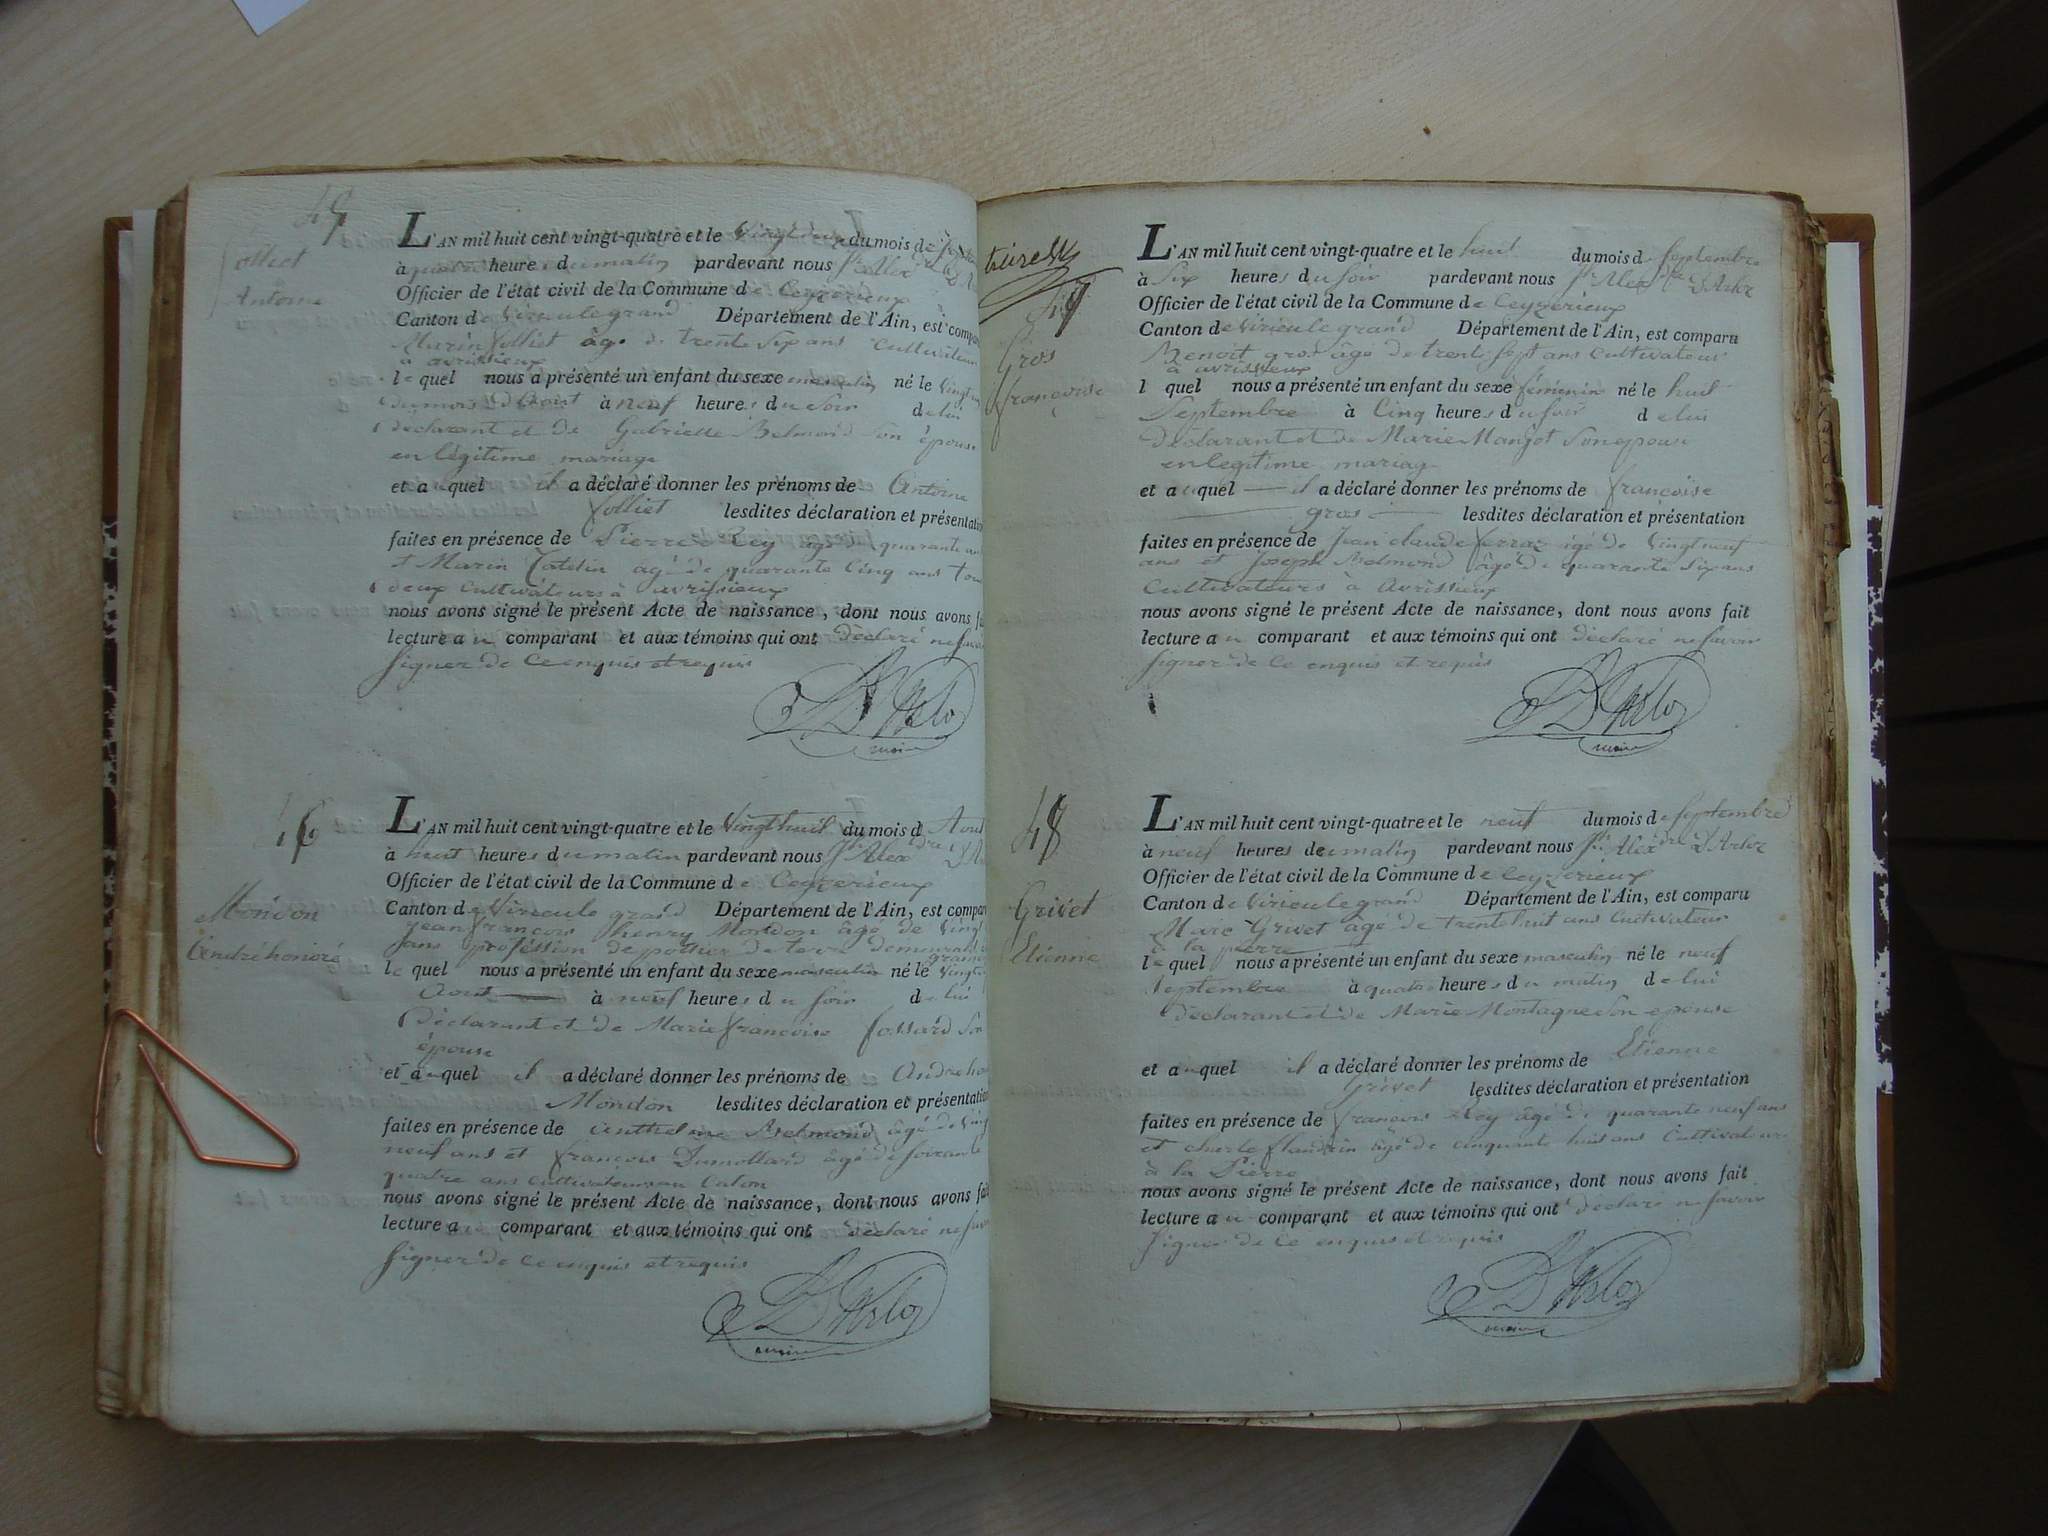 45
folliet
Antoine
L'AN mil huit cent vingt-quatre et le du mois de
à quatre heures du matin pardevant nous Jh Alex
Officier de l'état civil de la Commune de Ceyzerieux
Canton de Virieulegrand Département de l'Ain, est compar
Marin folliet âgé de trente Six ans Cultivateur
à avrissieux
lequel nous a présenté un enfant du sexe masculin né le vingt
du mois D'Aout à neuf heures du Soir de lui
déclarant et de Gabrielle Belmond Son épouse
en légitime mariage
et auquel il a déclaré donner les prénoms de Antoine
folliet lesdites déclaration et présentati
faites en présence de Pierre Rey agé quarante
et Marin agé de quarante Cinq ans tou
deux Cultivateurs à avrissieux
nous avons signé le présent Acte de naissance, dont nous avons fai
lecture au comparant et aux témoins qui ont déclaré ne savoi
signer de Ce enquis et requis
D'Arloz
maire
46
Mondon
André honoré
L'AN mil huit cent vingt-quatre et le Vingt huit du mois d Aout
à huit heures du matin pardevant nous Jh Alexdre D'Ar
Officier de l'état civil de la Commune de Ceyzerieux
Canton de Virieule grand Département de l'Ain, est compar
jean françois henry Mondon âgé de vingt
ans profession de potier de terre demeurant
lequel nous a présenté un enfant du sexe masculin né le vingt
Aout à neuf heures du Soir de lui
Déclarant et de Marie françoise fossard Son
épouse
et auquel il a déclaré donner les prénoms de André ho
Mondon lesdites déclaration et présentation
faites en présence de anthelme Belmond âgé de Ving
neuf ans et françois Dumollard âgé de soixante
quatre ans cultivateurs au Caton
nous avons signé le présent Acte de naissance, dont nous avons fai
lecture au comparant et aux témoins qui ont déclaré ne sav
signer de Ce enquis et requis
D'Arloz
maire
47
Gros
françoise
L'AN mil huit cent vingt-quatre et le huit du mois de Septembre
à Six heures du soir pardevant nous Jh Alexdre D'Arloz
Officier de l'état civil de la Commune de Ceyzerieux
Canton de Virieulegrand Département de l'Ain, est comparu
Benoit gros âgé de trente Sept ans Cultivateur
à avrissieux
l quel nous a présenté un enfant du sexe féminin né le huit
Septembre à Cinq heures du soir de lui
Déclarant et de Marie Mangot Son epouse
en legitime mariage
et auquel il a déclaré donner les prénoms de françoise
gros lesdites déclaration et présentation
faites en présence de Jean claude ferraz âgé de Vingt neuf
ans et Joseph Belmond âgé de quarante Six ans
Cultivateurs à avrissieux
nous avons signé le présent Acte de naissance, dont nous avons fait
lecture au comparant et aux témoins qui ont déclaré ne savoir
signer de Ce enquis et requis
D'Arloz
maire
48
Grivet
Etienne
L'AN mil huit cent vingt-quatre et le neuf du mois de Septembre
à neuf heures du matin pardevant nous Jh Alexdre D'Arloz
Officier de l'état civil de la Commune de Ceyzerieux
Canton de Virieulegrand Département de l'Ain, est comparu
Marc Grivet âgé de trente huit ans Cultivateur
à la pierre
lequel nous a présenté un enfant du sexe masculin né le neuf
Septembre à quatre heures du matin de lui
Déclarant et de Marie Montagne Son epouse
et auquel il a déclaré donner les prénoms de Etienne
Grivet lesdites déclaration et présentation
faites en présence de françois Rey âgé de quarante neuf ans
et charle flandrin âgé de cinquante huit ans Cultivateur
à la Pierre
nous avons signé le présent Acte de naissance, dont nous avons fait
lecture au comparant et aux témoins qui ont déclaré ne savoir
signer de Ce enquis et requis
D'Arloz
maire